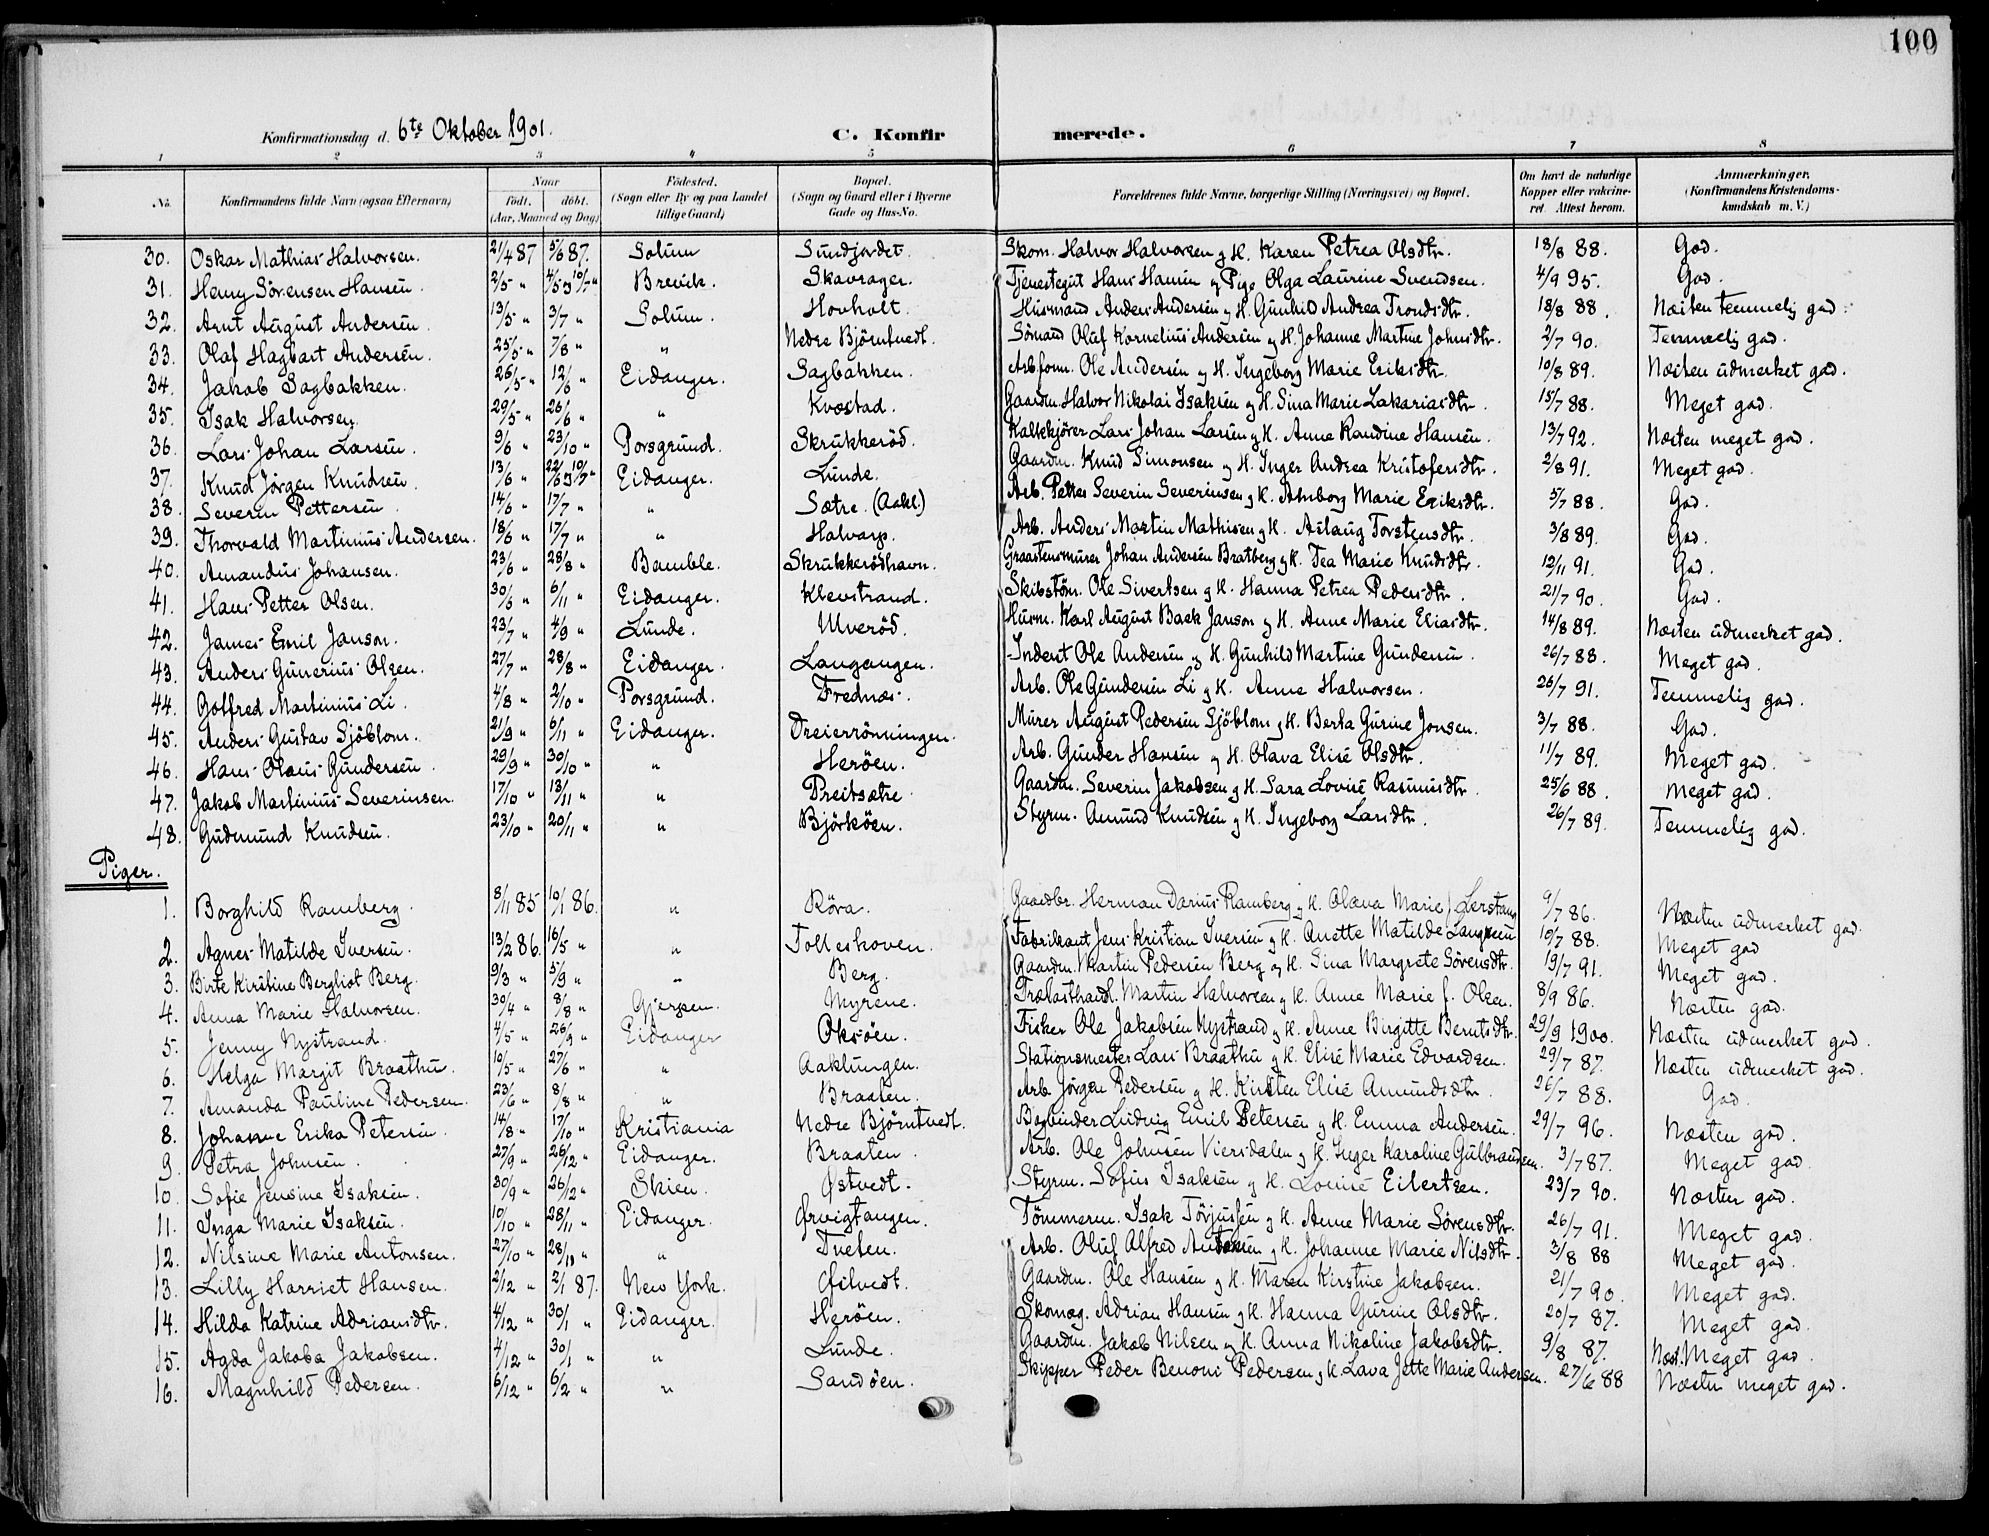 100
Konfirmationsdag d. 6te Oktober 1901. C. Konfirmerede.
1 2 3 4 5 6 7 8
No. Konfirmandens fulde Navn (ogsaa Efternavn) Naar født. døbt. (Aar, Maaned og Dag) Fødested. (Sogn eller By og paa Landet tillige Gaard) Bopæl. (Sogn og Gaard eller i Byerne Gade og Hus-No. Forældrenes fulde Navne, borgerlige Stilling (Næringsvei) og Bopæl. Om havt de naturlige Kopper eller vakcineret. Attest herom. Anmærkninger. (Konfirmandens Kristendomskundskab m. V.)
30. Oskar Mathias Halvorsen. 21/4 87 5/6 87. Solum Sundjordet. Skom. Halvor Halvorsen og H. Karen Petrea Olsdtr. 18/8 88. God.
31. Henry Sörensen Hansen. 2/5 " 4/5 10/7 " Brevik. Skavrager. Tjenestegut Hans Hansen og Pige Olga Laurine Svendsen. 4/9 95. God.
32. Arnt August Andersen. 13/5 " 3/7 " Solum. Hovholt. Husmand Anders Andersen og H. Gunhild Andrea Trondsdtr. 18/8 88. Næsten temmelig god.
33. Olaf Hagbart Andersen. 25/5 " 7/8 " " Nedre Björntvedt. Sömand Oluf Kornelius Andersen og H. Johanne Martine Johnsdtr. 2/7 90. Temmelig god.
34. Jakob Sagbakken. 26/5 " 12/6 " Eidanger. Sagbakken. Arb.form. Ole Andersen og H. Ingeborg Marie Eriksdtr. 10/8 89. Næsten udmerket god.
35. Isak Halvorsen 29/5 " 26/6 " " Kvæstad. Gaardm. Halvor Nikolai Isaksen og H. Sina Marie Zakariasdtr. 15/7 88. Meget god.
36. Lars Johan Larsen. 9/6 " 23/10 " Porsgrund. Skrukkeröd. Kalkkjører Lars Johan Larsen og H. Anne Randine Hansen. 13/7 92. Næsten meget god.
37. Knud Jörgen Knudsen. 13/6 " 22/6 10/7 " Eidanger. Lunde. Gaardm. Knud Simonsen og H. Inger Andrea Kristofersdtr. 2/8 91. Meget god.
38. Severin Pettersen. 14/6 " 17/7 " " Sætre. (Aakl.) Arb. Petter Severin Severinsen og H. Asborg Marie Eriksdtr. 5/7 88. God.
39. Thorvald Martinius Andersen. 18/6 " 17/7 " " Halvarp. Arb. Anders Martin Mathisen og H. Aslaug Torstensdtr. 3/8 89. God.
40. Amandus Johansen. 23/6 " 28/8 " Bamble. Skrukkerödhavn. Graastensmurer Johan Andersen Bratberg og H. Tea Marie Knudsdtr. 12/11 91. God.
41. Hans Petter Olsen. 30/6 " 6/11 " Eidanger. Klevstrand. Skibstöm. Ole Sivertsen og H. Hanna Petrea Pedersdtr. 21/7 90. God.
42. James Emil Janson. 23/7 " 4/9 " Lunde. Ulveröd. Husm. Karl August Back Janson og H. Anne Marie Eliasdtr. 14/8 89. Næsten udmerket god.
43. Anders Gunerius Olsen. 27/7 " 28/8 " Eidanger. Langangen. Inderst Ole Andersen og H. Gunhild Martine Gundersen. 26/7 88. Meget god.
44. Gotfred Martinius Li. 4/8 " 2/10 " Porsgrund. Frednæs. Arb. Ole Gundersen Li og H. Anne Halvorsen. 26/7 91. Temmelig god.
45. Anders Gustav Sjöblom. 21/9 " 6/11 " Eidanger. Dreierrönningen. Murer August Pedersen Sjöblom og H. Berta Gurine Jonsen. 3/7 88. God.
46. Hans Olaus Gundersen. 29/9 " 30/10 " " Heröen. Arb. Gunder Hansen og H. Olava Elise Olsdtr. 11/7 89. Meget god.
47. Jakob Martinius Severinsen. 17/10 " 13/11 " " Preitsætre. Gaardm. Severin Jakobsen og H. Sara Lovise Rasmusdtr. 25/6 88. Meget god.
48. Gudmund Knudsen. 23/10 " 20/11 " " Björköen. Styrm. Amund Knudsen og H. Ingeborg Larsdtr. 26/7 89. Temmelig god.
Piger.
1. Borghild Ramberg. 8/11 85 10/1 86. " Röra. Gaardbr. Herman Darius Ramberg og H. Olava Marie f. Lerstang 9/7 86. Næsten udmerket god.
2. Agnes Matilde Iversen. 13/2 86. 16/5 " " Tolleskoven. Fabrikant Jens Kristian Iversen og H. Anette Matilde Langseen 10/7 88. Meget god
3. Birte Kirstine Bergliot Berg. 9/3 " 5/9 " " Berg. Gaardm. Martin Pedersen Berg og H. Sina Margrete Sörensdtr. 19/7 91. Meget god.
4. Anna Marie Halvorsen. 30/4 " 8/8 " Gjerpen. Myrene. Trælasthandl. Martin Halvorsen og H. Anne Marie f. Olsen. 8/9 86. Næsten god.
5. Jenny Nystrand. 4/5 " 26/9 " Eidanger Oksöen. Fisker Ole Jakobsen Nystrand og H. Anne Birgitte Berntsdtr. 29/9 1900. Næsten udmerket god.
6. Helga Margit Braathu. 10/5 " 27/6 " " Aaklungen. Stationsmester Lars Braathu og H. Elise Marie Edvardsen. 29/7 87. Næsten udmerket god.
7. Amanda Pauline Pedersen. 23/6 " 8/8 " " Braaten. Arb. Jörgen Pedersen og H. Kirsten Elise Amundsdtr. 26/7 88. God.
8. Johanne Erika Petersen. 14/8 " 17/10 " Kristiania Nedre Björntvedt. Bogbinder Ludvig Emil Petersen og H. Emma Andersen. 29/7 96. Næsten god.
9. Petra Johnsen. 27/9 " 26/12 " Eidanger. Braaten. Arb. Ole Johnsen Viersdalen og H. Inger Karoline Gulbrandsen. 3/7 87. Meget god.
10. Sofie Jensine Isaksen. 30/9 " 26/12 " Skien. Østvedt. Styrm. Sofus Isaksen og H. Lovise Eilertsen. 23/7 90. Næsten god.
11. Inga Marie Isaksen. 10/10 " 28/11 " Eidanger. Ørvigtangen. Tömmerm. Isak Törjussen og H. Anne Marie Sörensdtr. 26/7 91. Meget god.
12. Nilsine Marie Antonsen. 27/10 " 28/ " " Tveten. Arb. Oluf Alfred Antonsen og H. Johanne Marie Nilsdtr. 3/8 88 Meget god.
13. Lilly Harriet Hansen. 2/12 " 2/1 87. New York. Gaardm. Ole Hansen og H. Maren Kirstine Jakobsen. 21/7 90. Meget god.
14. Hilda Katrine Adriansdtr. 4/12 " 30/1 " Eidanger. Heröen. Skomag. Adrian Hansen og H. Hanna Gurine Olsdtr. 20/7 87. Meget god.
15. Agda Jakoba Jakobsen. 4/12 " 30/1 " " Lunde. Gaardm. Jakob Nilsen og H. Anna Nikoline Jakobsdtr. 9/8 87. Næst. Meget god.
16. Magnhild Pedersen. 6/12 " 6/2 " " Sandöen. Skipper Peder Benoni Pedersen og H. Lava Jette Marie Andersen. 27/6 88 Næsten meget god.